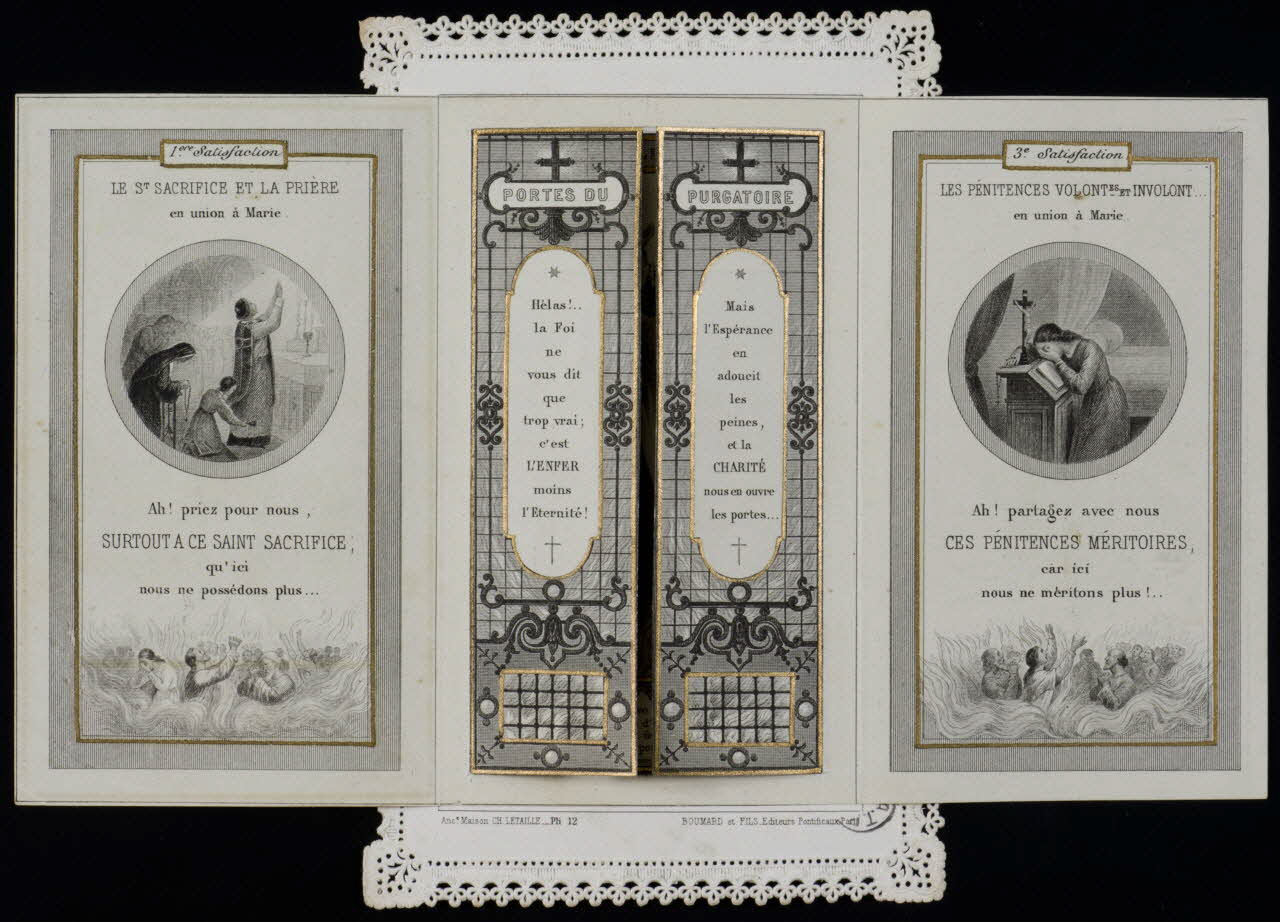 1.ere Satisfaction
LE ST SACRIFICE ET LA PRIÈRE
en union à Marie.
Ah! priez pour nous,
SURTOUT A CE SAINT SACRIFICE,
qu'ici
nous ne possédons plus...
PORTES DU
Hèlas!..
la Foi
ne
vous dit
que
trop vrai;
c'est
L'ENFER
moins
l'Eternité!
PURGATOIRE
Mais
l'Espérance
en
adoucit
les
peines,
et la
CHARITÉ
nous en ouvre
les portes...
3e Satisfaction
LES PÉNITENCES VOLONTES ET INVOLONT...
en union à Marie
Ah! partagez avec nous
CES PÉNITENCES MÉRITOIRES,
car ici
nous ne méritons plus!..
Ance Maison CH. LETAILLE__Ph 12
BOUMARD et FILS. Editeurs Pontificaux Paris